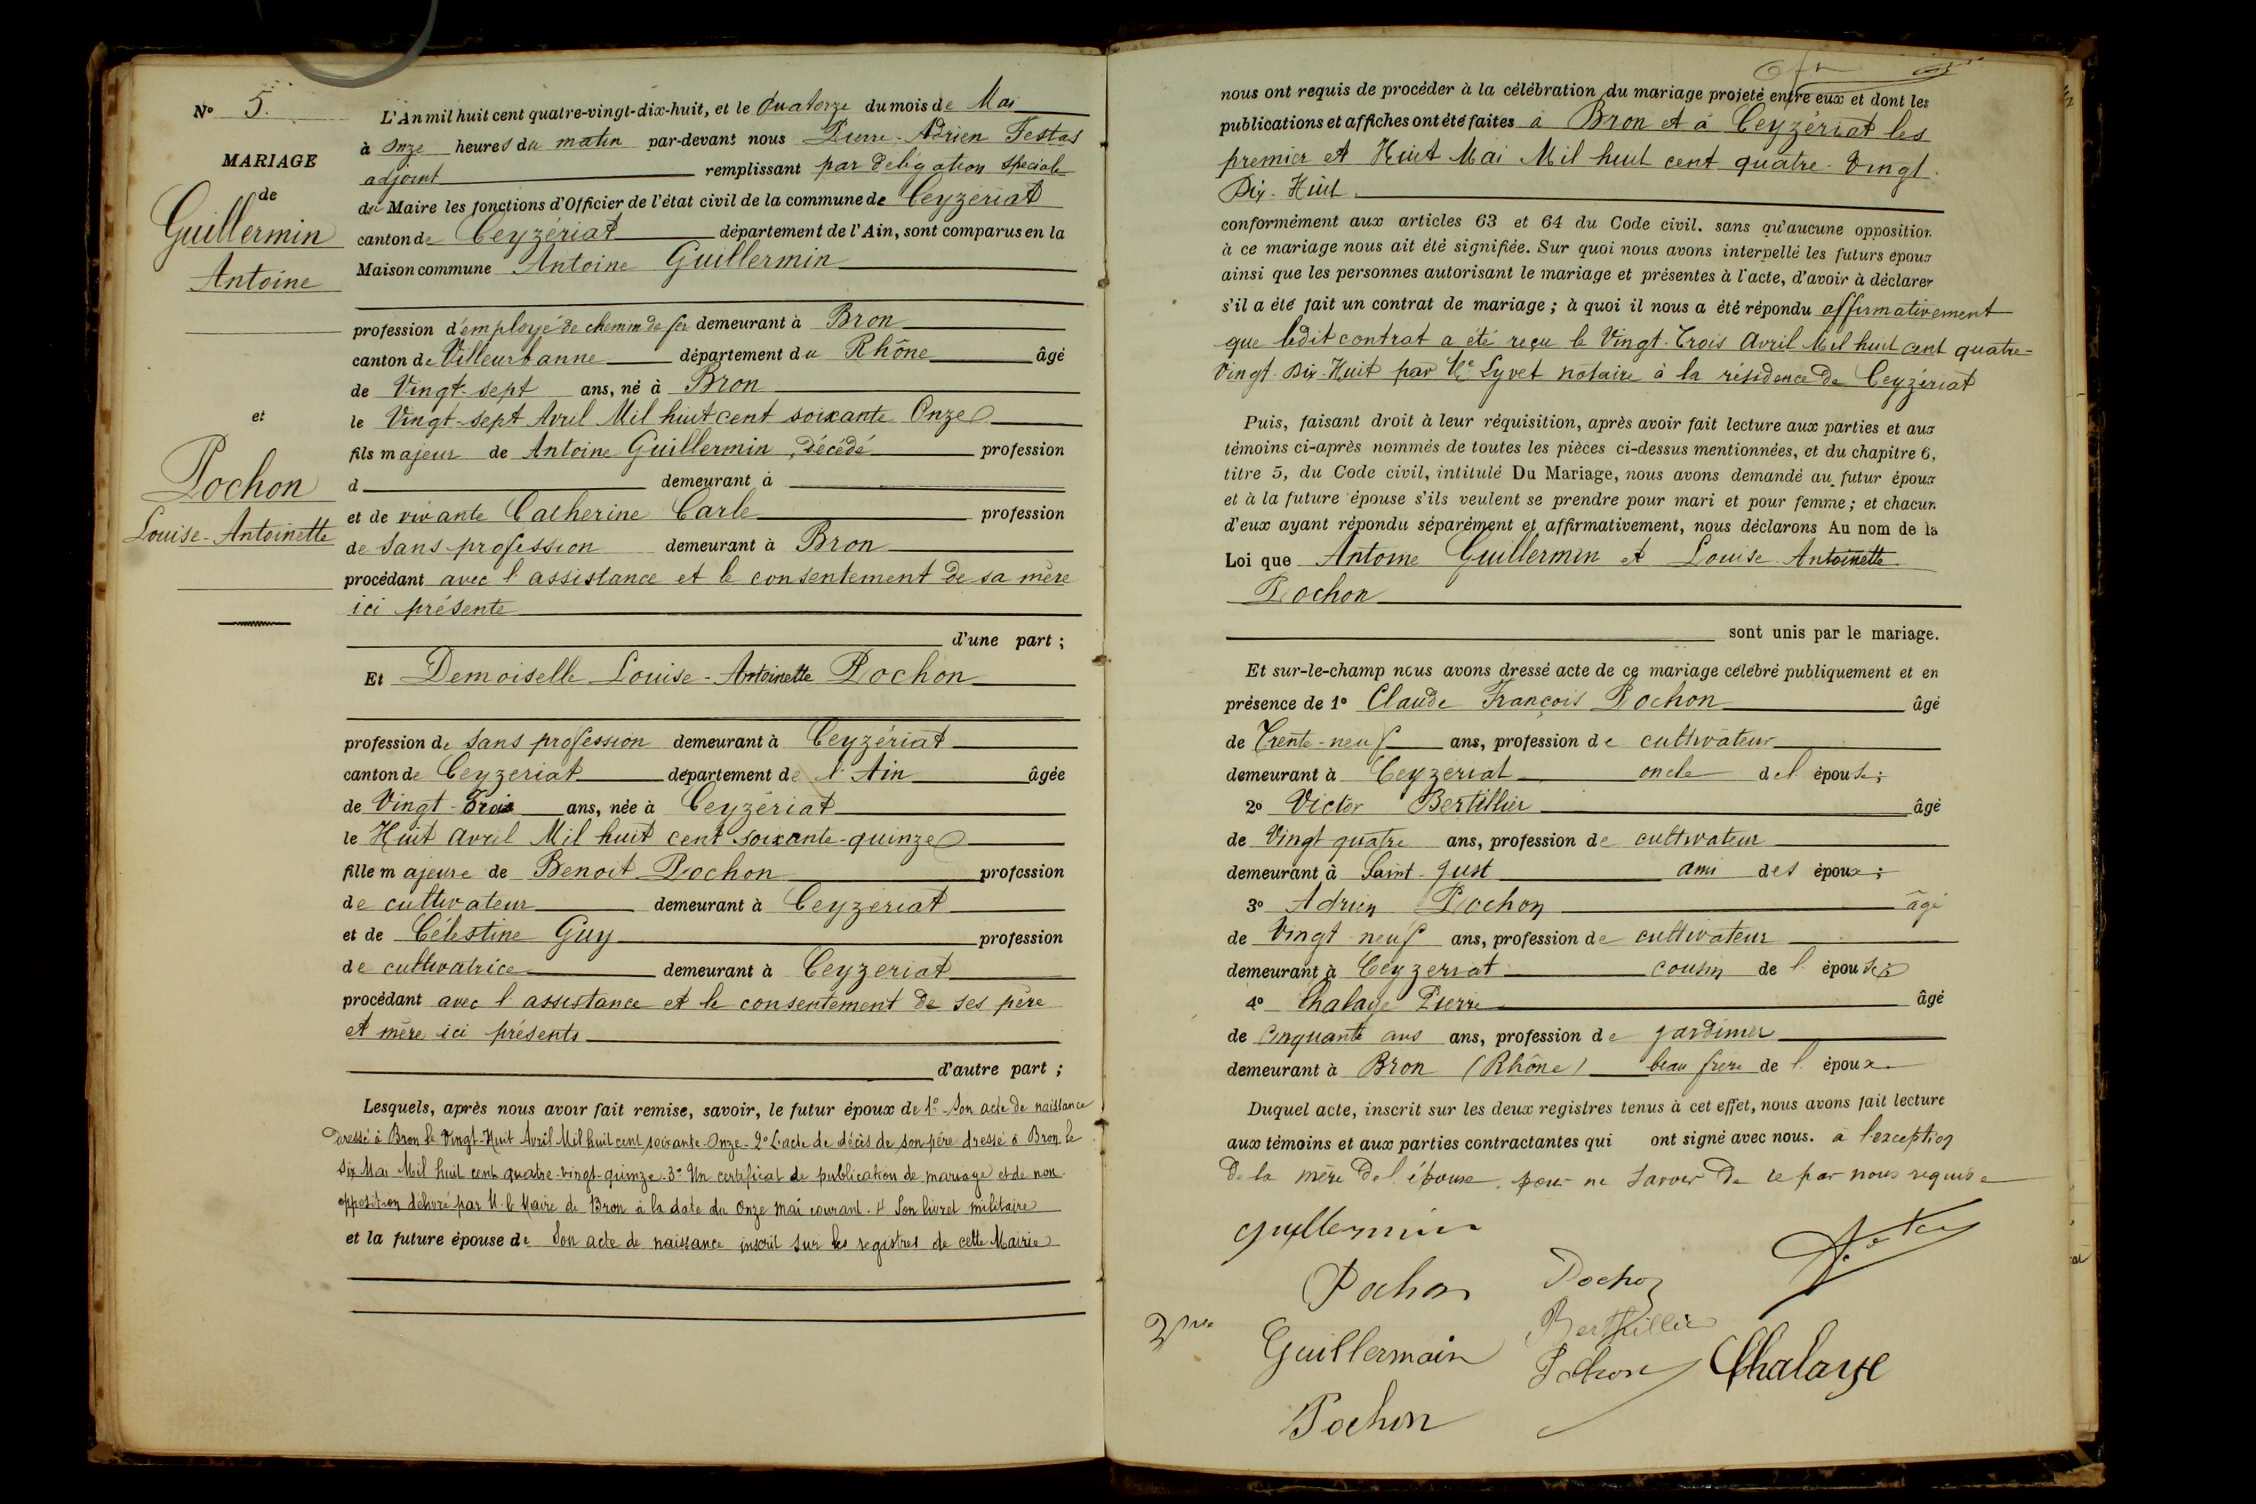 N° 5.
MARIAGE
de
Guillermin
Antoine
et
Pochon
Louise-Antoinette
L'An mil huit cent quatre-vingt-dix-huit, et le Quatorze du mois de Mai
à Onze heures du matin par-devant nous Pierre-Adrien Festas
adjoint remplissant par délégation spéciale
du Maire les fonctions d'Officier de l'état civil de la commune de Ceyzériat
canton de Ceyzériat département de l'Ain, sont comparus en la
Maison commune Antoine Guillermin
profession d'employé de chemin de fer demeurant à Bron
canton de Villeurbanne département du Rhône âgé
de Vingt-sept ans, né à Bron
le Vingt-sept Avril Mil huit cent soixante Onze
fils majeur de Antoine Guillermin, décédé profession
d demeurant à
et de vivante Catherine Carle profession
de sans profession demeurant à Bron
procédant avec l'assistance et le consentement de sa mère
ici présente
d'une part ;
Et Demoiselle Louise-Antoinette Pochon
profession de sans profession demeurant à Ceyzériat
canton de Ceyzeriat département de l'Ain âgée
de Vingt-trois ans, née à Ceyzériat
le Huit avril Mil huit cent soixante-quinze
fille majeure de Benoit Pochon profession
de cultivateur demeurant à Ceyzeriat
et de Célestine Guy profession
de cultivatrice demeurant à Ceyzeriat
procédant avec l'assistance et le consentement de ses père
et mère ici présents
d'autre part ;
Lesquels, après nous avoir fait remise, savoir, le futur époux de 1° Son acte de naissance
dressé à Bron le Vingt-Huit Avril Mil huit cent soixante-Onze - 2° L'acte de décès de son père dressé à Bron le
six Mai Mil huit cent quatre-vingt-quinze. 3° Un certificat de publication de mariage et de non
opposition délivré par M. le Maire de Bron à la date du Onze mai courant. 4° Son livret militaire
et la future épouse de Son acte de naissance inscrit sur les registres de cette Mairie
nous ont requis de procéder à la célébration du mariage projeté entre eux et dont les
publications et affiches ont été faites à Bron et à Ceyzériat les
premier et Huit Mai Mil huit cent quatre-Vingt
Dix-Huit
conformément aux articles 63 et 64 du Code civil. sans qu'aucune opposition
à ce mariage nous ait été signifiée. Sur quoi nous avons interpellé les futurs époux
ainsi que les personnes autorisant le mariage et présentes à l'acte, d'avoir à déclarer
s'il a été fait un contrat de mariage ; à quoi il nous a été répondu affirmativement
que ledit contrat a été reçu le Vingt-Trois Avril Mil huit cent quatre-
Vingt-Dix-Huit par Me Lyvet notaire à la résidence de Ceyzériat
Puis, faisant droit à leur réquisition, après avoir fait lecture aux parties et aux
témoins ci-après nommés de toutes les pièces ci-dessus mentionnées, et du chapitre 6,
titre 5, du Code civil, intitulé Du Mariage, nous avons demandé au futur époux
et à la future épouse s'ils veulent se prendre pour mari et pour femme ; et chacun
d'eux ayant répondu séparément et affirmativement, nous déclarons Au nom de la
Loi que Antoine Guillermin et Louise Antoinette
Pochon
sont unis par le mariage.
Et sur-le-champ nous avons dressé acte de ce mariage célébré publiquement et en
présence de 1° Claude François Pochon âgé
de Trente-neuf ans, profession de cultivateur
demeurant à Ceyzériat oncle de l'épouse ;
2° Victor Bertillier âgé
de Vingt quatre ans, profession de cultivateur
demeurant à Saint-Just ami des époux ;
3° Adrien Pochon âgé
de Vingt neuf ans, profession de cultivateur
demeurant à Ceyzeriat cousin de l'épouse
4° Chalaye Pierre âgé
de Cinquante ans ans, profession de jardinier
demeurant à Bron (Rhône) beau frère de l'époux
Duquel acte, inscrit sur les deux registres tenus à cet effet, nous avons fait lecture
aux témoins et aux parties contractantes qui ont signé avec nous. à l'exception
de la mère de l'épouse, pour ne savoir de ce par nous requise
Guillermin
Pochon Pochon
Berthillier
Guillermain Pochon Chalaye
Pochon